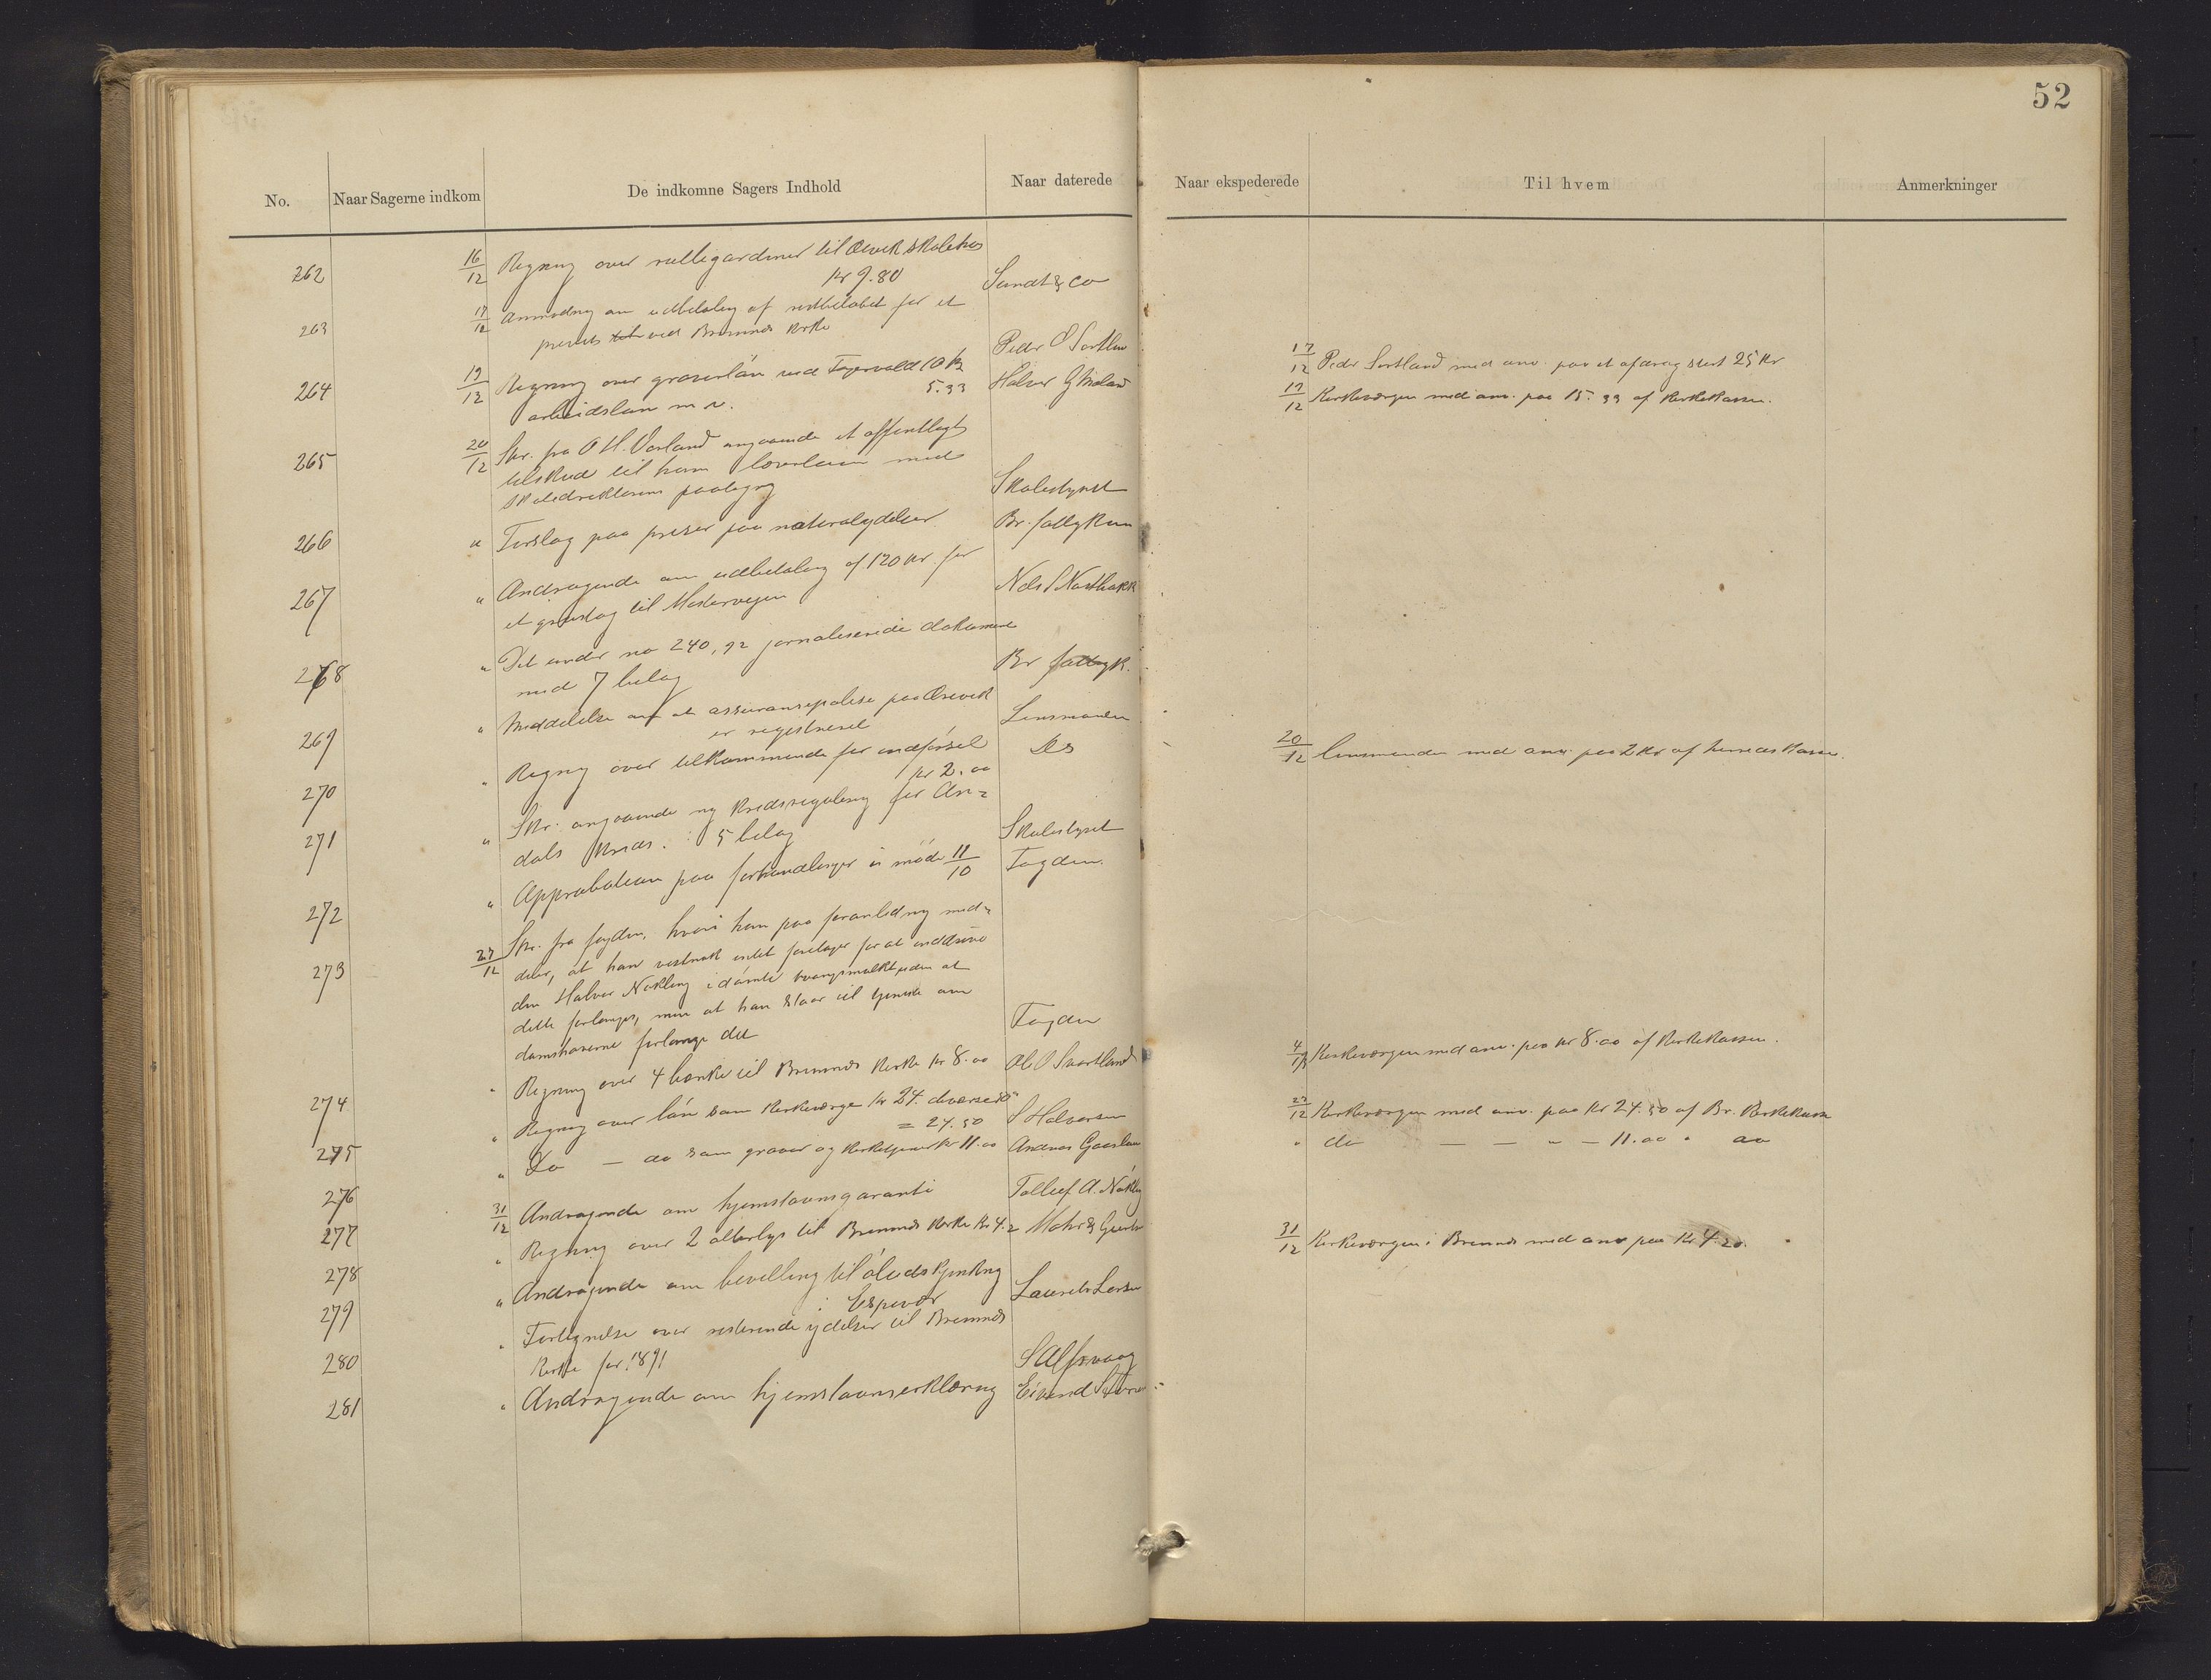 52
No.
Naar Sagerne indkom
De indkomne Sagers Indhold
Naar daterede
Naar ekspederede
Til hvem
Anmerkninger
262 16/12 Regning over rullegardiner til skolehus
kr 9.80 Sundt & Co
263 17/12 Anmodning om udbetaling af restbeløbet for et
ved Bremnes kirke Peder O Sortland
17/12 Peder Sortland med anv. paa et afdrag stort 25 Kr
264 19/12 Regning over graverløn ved 10 kr
arbeidsløn m v. 5.33 Halvor G
19/12 Kirkeværgen med anv. paa 15.33 af Kirkekassen.
265 20/12 Skr. fra O H. Vorland angaaende et offentlligt
tilskud til hans lærerløn med
skoledirektørens paategng Skolestyret
266 " Forslag paa priser paa naturalydelser Br. fattigkom
267 " Andragende om udbetaling af 120 kr for
et til Mostervegen Nils
268 " Det under no 240, 92 jornaliserede dokument
med 7 bilag Br fattigk.
269 " Meddelelse om at assuransepolise paa
er registreret Lensmanden
270 " Regng over tilkommende for indførsel Do
kr 2.00
20/12 lensmanden med anv. paa 2 Kr af herredskassen.
271 " Skr. angaaende ny kredsregulering for An=
dals kreds. : 5 bilag Skolestyret
272 " Approbation paa forhandlinger i møde 11/10 Fogden.
273 27/12 Skr. fra fogden, hvori han paa foranledning med=
deler, at han vistnok intet foretager for at inddrive
den Halvor Nøkling idømte tvangsmulkt uden at
dette forlanges, men at han staar til tjeneste om
domhaverne forlange det Fogden
274 " Regning over 4 bænke til Bremnes kirke kr 8.00 Ol O Svortland
4/ Kirkeværgen med anv. paa kr 8.00 af Kirkekassen.
275 " Regning over løn som Kirkeværge kr 24. diverse
= 24.50 S Halvorsen
27/12 Kirkeværgen med anv. paa Kr 24.50 af Br. Kirkekasse
276 " Do — do som graver og Kirketjener kr 11.00 Andreas
" do — — " — 11.00 " do
277 31/12 Andragende om hjemstavnsgaranti Tollef A. Nøkling
278 " Regning over 2 alterlys til Bremnes Kirke Kr 4.2 Mohr &
31/12 Kirkeværgen i Bremnes med anv paa Kr 4.20.
279 " Andragende om bevilling til øludskjænkng
i Espevær Laurits Larsen
280 " Fortegnelse over resterende ydelser til Bremnes
Kirke for 1891 S Alfsvaag
281 " Andragende om hjemstavnserklæring Eivind